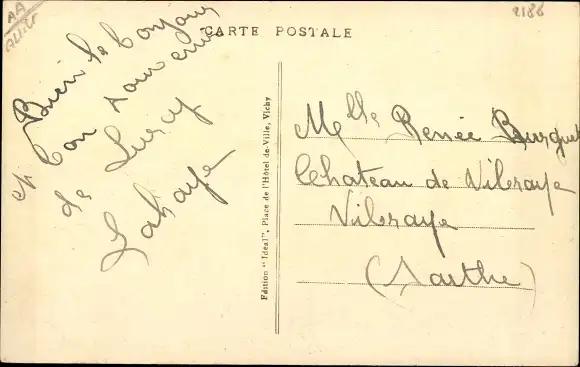 AA
Allier
2186
CARTE POSTALE
Bien le bonjour
et bon souvenir
de Luray
Lahaye
Edition "Idéal", Place de l'Hôtel-de-Ville, Vichy
Melle Renée Burguet
Chateau de Vibraye
Vibraye
(Sarthe)